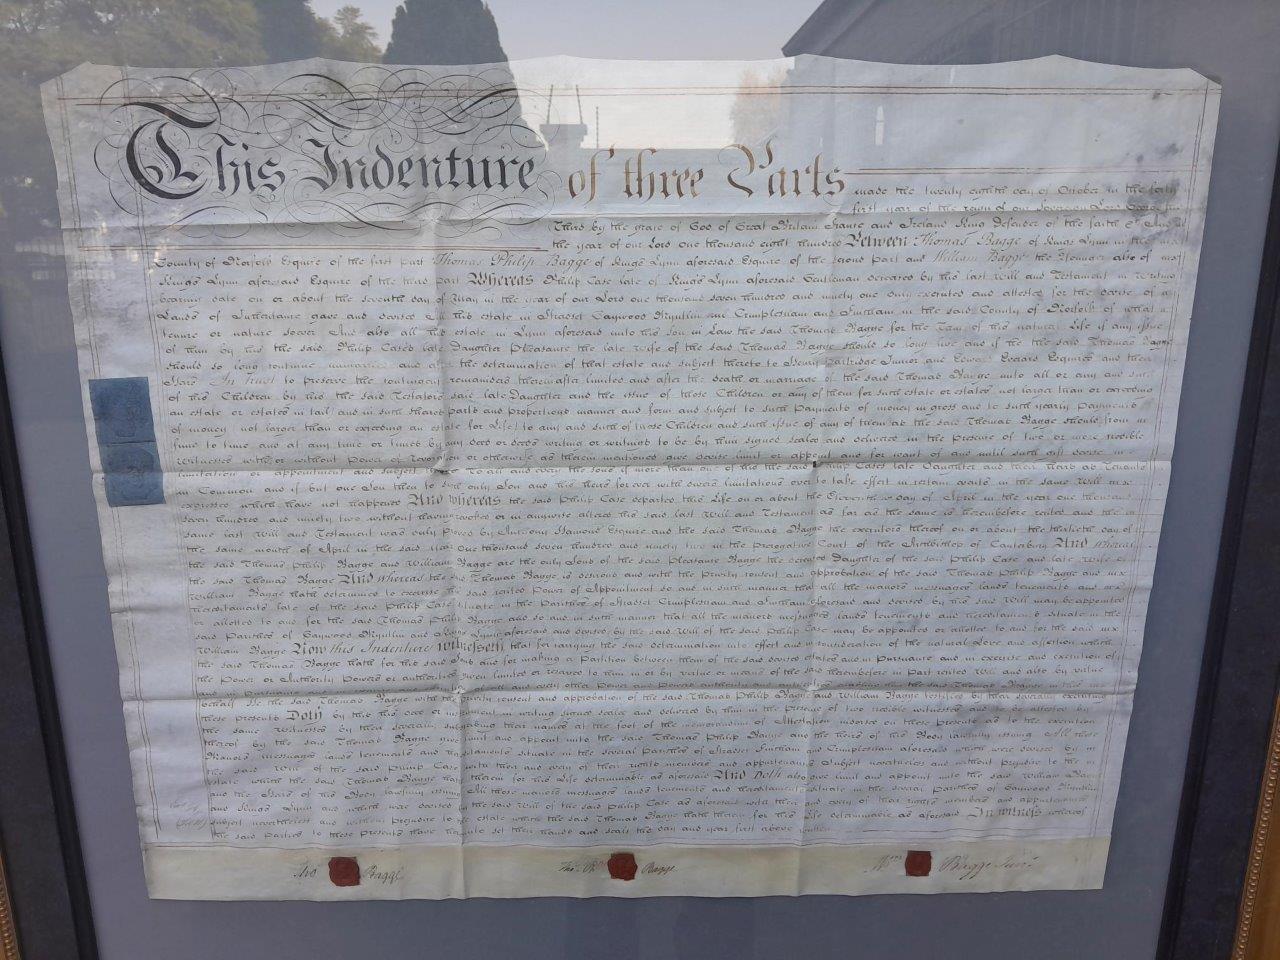 This Indenture of three Parts made the twenty eighth day of October in the forty
first year of the reign of our Sovereign Lord George the
Third by the grace of God of Great Britain France and Ireland King Defender of the faith &c And in
the year of our Lord One thousand eight hundred Between Thomas Bagge of Kings Lynn in the
County of Norfolk Esquire of the first part Thomas Philip Bagge of Kings Lynn aforesaid Esquire of the second part and William Bagge the Younger also of
Kings Lynn aforesaid Esquire of the third part Whereas Philip Case late of Kings Lynn aforesaid Gentleman deceased by his last Will and Testament in Writing
bearing date on or about the seventh day of May in the year of our Lord one thousand seven hundred and ninety one duly executed and attested for the devise of
Lands of Inheritance gave and devised All his estate in Stradset Gaywood Mintlin and Crimplesham and Fincham in the said County of Norfolk of what
tenure or nature soever And also all his estate in Lynn aforesaid unto his son in Law the said Thomas Bagge for the Term of his natural Life if any issue
of him by his the said Philip Case's late Daughter Pleasance the late Wife of the said Thomas Bagge should so long live and if the said Thomas Bagge
should so long continue unmarried and the determination of that estate and subject thereto to Henry Partridge Junior and Edward Everard Esquires and their
Heirs In trust to preserve the contingent remainders thereinafter limited and after the death or marriage of the said Thomas Bagge unto all or any
of his Children by his the said Testators said late Daughter and the issue of those Children or any of them for such estate or estates not larger than or exceeding
an estate or estates in tail and in such shares parts and proportions manner and form and subject to such payments of money in gross and to such yearly payments
of money not larger than or exceeding an estate for Life to any and such of those Children and such issue of any of them as the said Thomas Bagge should from
time to time and at any time or times by any deed or deeds writing or writings to be by him signed sealed and delivered in the presence of two or more credible
Witnesses with or without Power of Revocation or otherwise as therein mentioned give devise limit or appoint and for want of and until such gift devise
limitation or appointment and subject To all and every the sons if more than one of his the said Philip Cases late Daughter and their heirs as Tenants
in Common and if but one Son then to such only Son and his heirs for ever with divers limitations over to take effect in certain events in the same Will
expressed which have not happened And whereas the said Philip Case departed this Life on or about the day of April in the year one thousand
seven hundred and ninety two without having revoked or in anywise altered his said last Will and Testament as far as the same is hereinbefore recited and the
same last Will and Testament was duly proved by Esquire and the said Thomas Bagge the executors thereof on or about the thirtieth day of
the same month of April in the said year One thousand seven hundred and ninety two in the Prerogative Court of the Archbishop of Canterbury And whereas
the said Thomas Philip Bagge and William Bagge are the only Sons of the said Pleasance Bagge the deceased Daughter of the said Philip Case and late Wife of
the said Thomas Bagge And whereas the said Thomas Bagge is desirous and with the privity consent and approbation of the said Thomas Philip Bagge and
William Bagge hath determined to exercise the said recited Power of Appointment so and in such manner that all the manors messuages lands tenements and
hereditaments late of the said Philip Case situate in the Parishes of Stradset Crimplesham and Fincham aforesaid and devised by his said Will may be appointed
or allotted to and for the said Thomas Philip Bagge and so and in such manner that all the manors messuages lands tenements and hereditaments situate in the
said Parishes of Gaywood Mintlin and Kings Lynn aforesaid and devised by the said Will of the said Philip Case may be appointed or allotted to and for the said
William Bagge Now this Indenture witnesseth that for carrying the said determination into effect and in consideration of the natural Love and affection which
the said Thomas Bagge hath for his said Sons and for making a Partition between them of the said devised estates and in pursuance and in exercise and execution of
the Power or Authority Powers or authorities given limited or reserved to him in or by virtue or means of the said hereinbefore in part recited Will and also by virtue
and in pursuance and of all and every other Power and Powers Authority and authorities the said Thomas Bagge in this
behalf He the said Thomas Bagge with the privity consent and approbation of the said Thomas Philip Bagge and William Bagge testified by their severally executing
these presents Doth by this his deed or instrument in writing signed sealed and delivered by him in the presence of two credible witnesses and to be attested by
the same Witnesses by their severally subscribing their names at the foot of the memorandum of Attestation indorsed on these presents as to the execution
thereof by the said Thomas Bagge give limit and appoint unto the said Thomas Philip Bagge and the heirs of his Body lawfully issuing All those
Manors messuages lands tenements and hereditaments situate in the several Parishes of Stradset Fincham and Crimplesham aforesaid which were devised by
the said Will of the said Philip Case with their and every of their rights members and appurtenances Subject nevertheless and without prejudice to the
estate which the said Thomas Bagge hath therein for his Life determinable as aforesaid And doth also give limit and appoint unto the said William Bagge
and the Heirs of his Body lawfully issuing All those manors messuages lands tenements and hereditaments situate in the several Parishes of Gaywood Mintlin
and Kings Lynn and which were devised by the said Will of the said Philip Case as aforesaid with their and every of their rights members and appurtenances
subject nevertheless and without prejudice to the estate which the said Thomas Bagge hath therein for his Life determinable as aforesaid In witness whereof
the said Parties to these presents have hereunto set their hands and seals the day and year first above written
Tho Bagge
Thos. Ph. Bagge
Wm. Bagge Junr.